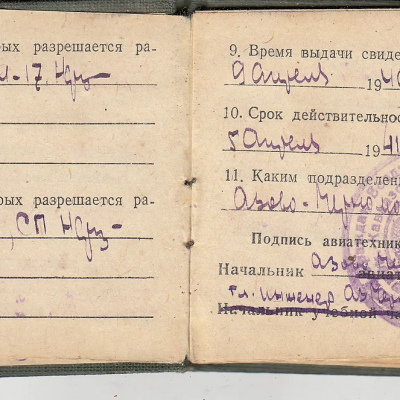 рых разрешается ра-
-17. Нрз-
рых разрешается ра-
СП Нрз-
9. Время выдачи свиде
9 Апреля 1940
10. Срок действительнос
5 Апреля 1941
11. Каким подразделен
Азово-Черномо
Подпись авиатехник
Начальник
Азово-Че
авиа
Гл. инженер Аз. Чер
Начальник учебной ча